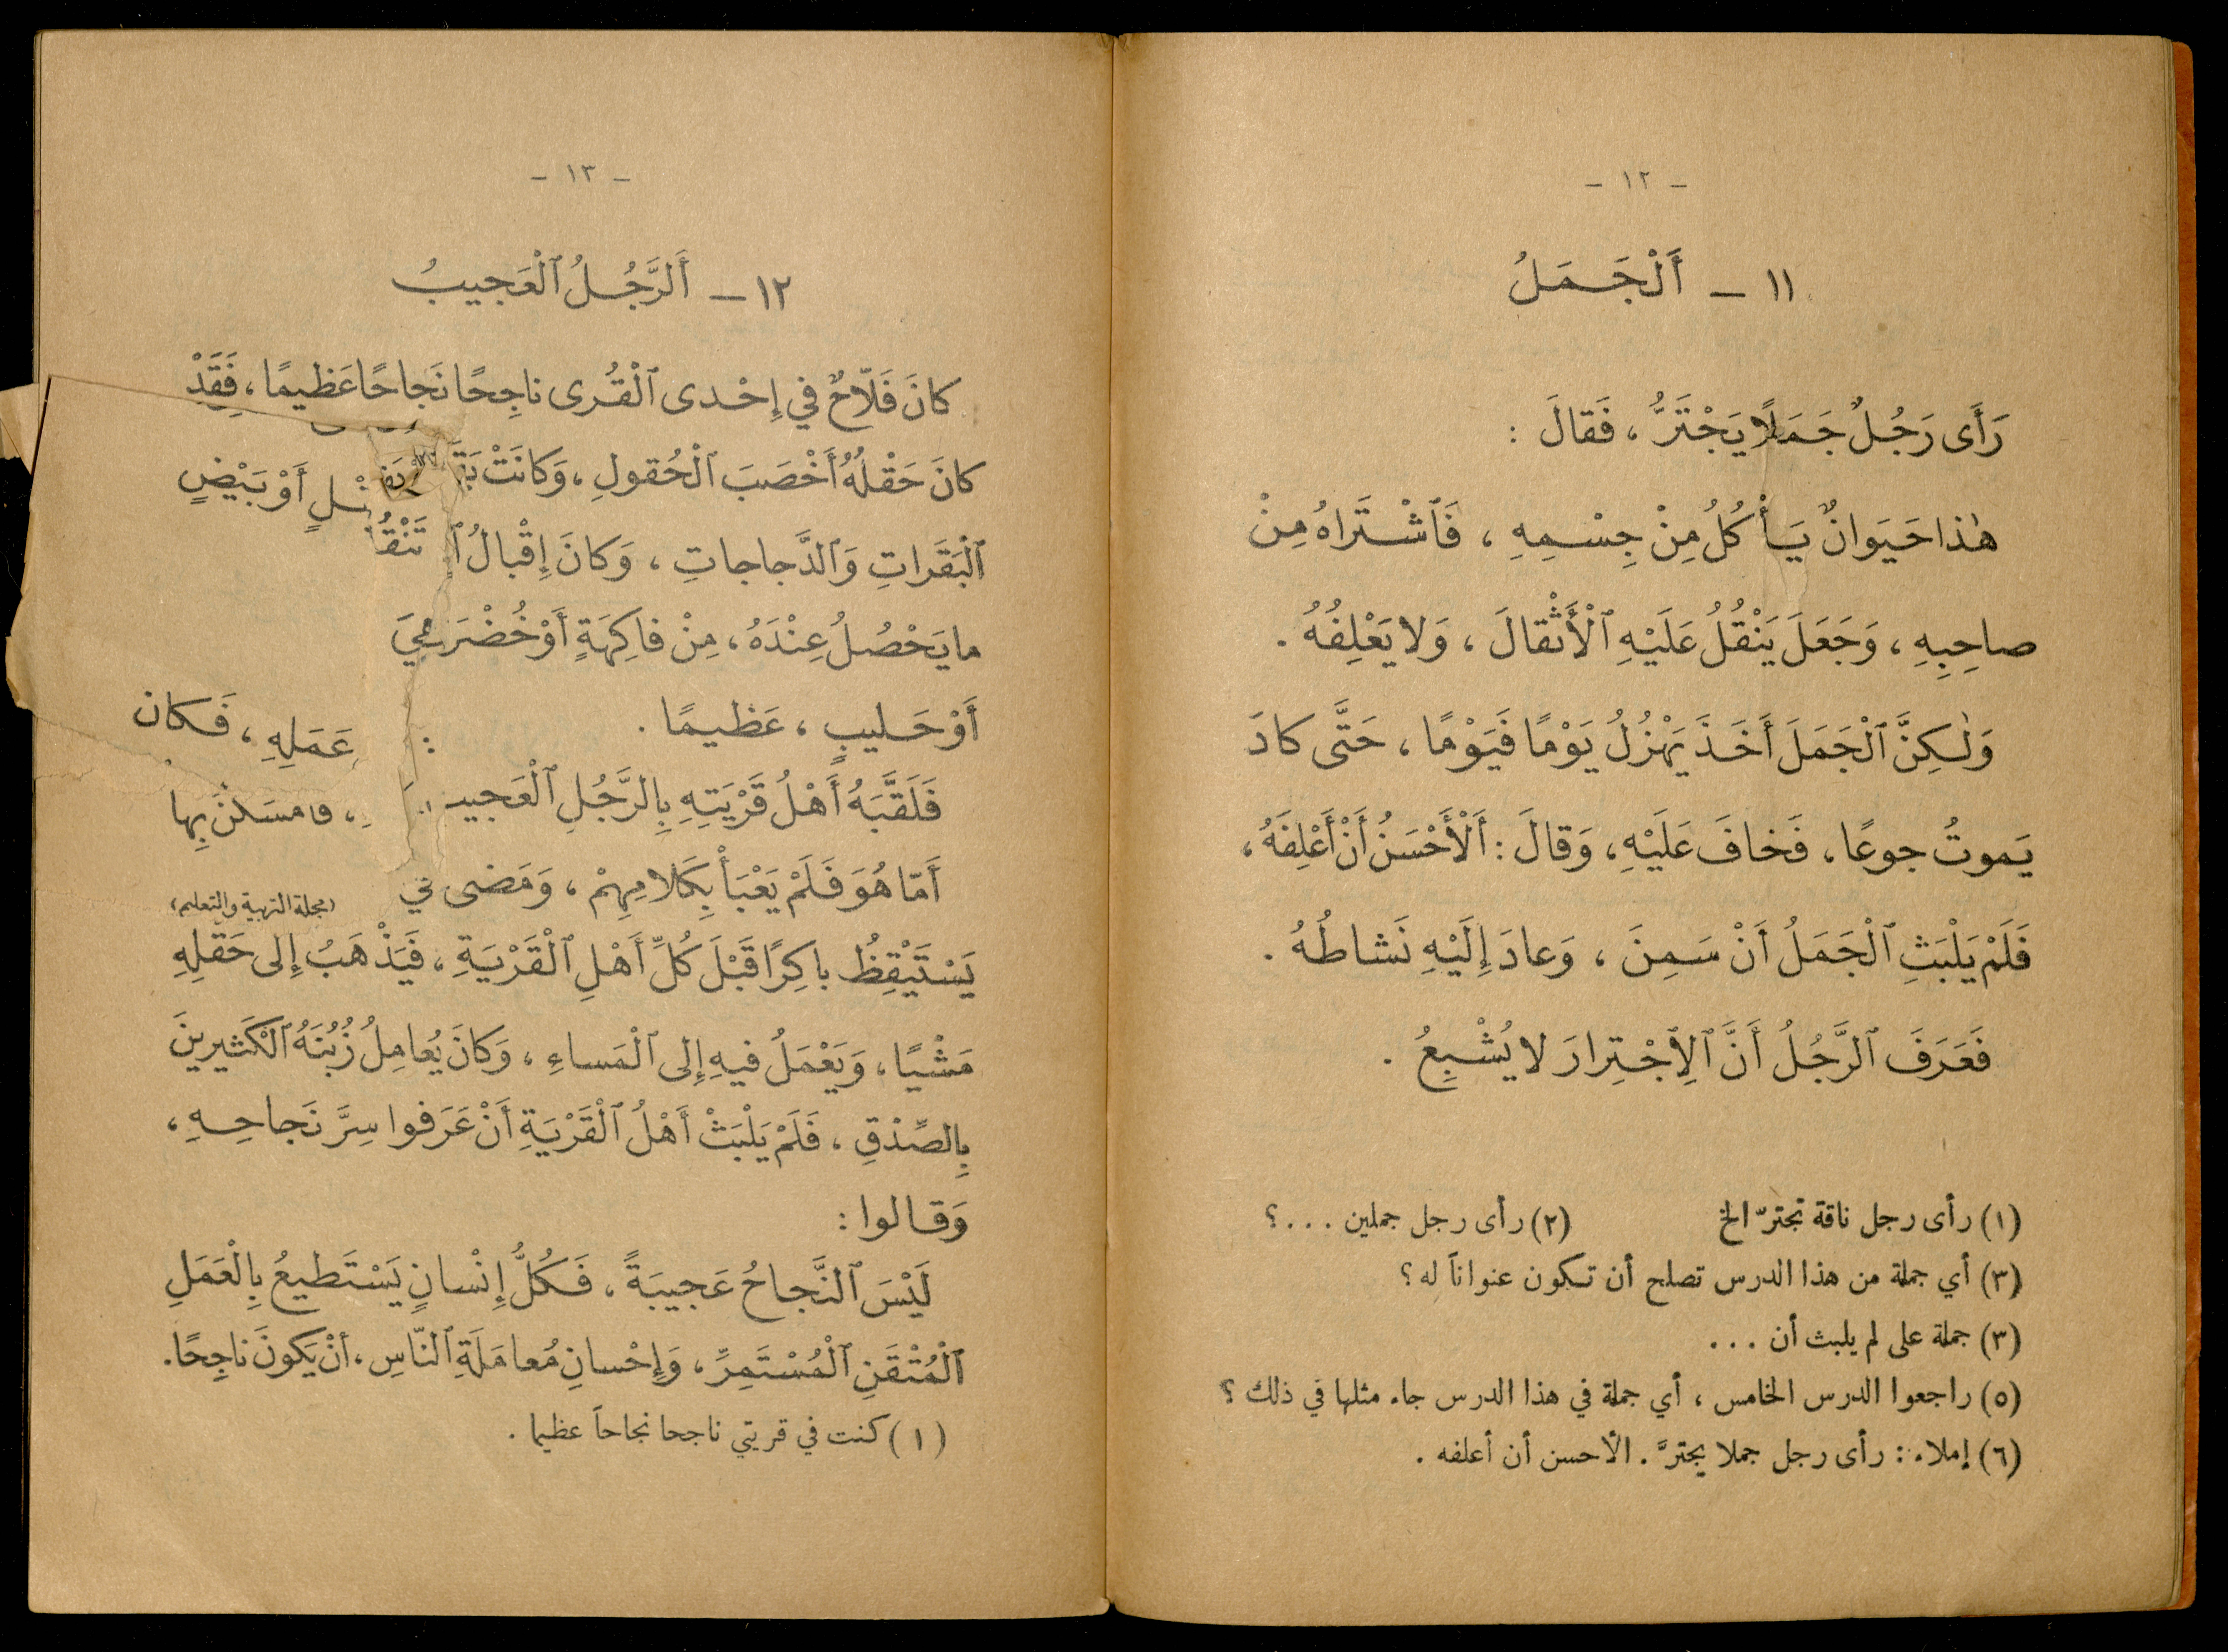 - ١٢ -
١١ - أَلْجَمَلُ
رَأَى رَجُلٌ جَمَلًا يَجْتَرُّ ، فَقالَ :
هٰذا حَيَوانٌ يَأْكُلُ مِنْ جِسْمِهِ ، فَٱشْتَراهُ مِنْ
صاحِبِهِ ، وَجَعَلَ يَنْقُلُ عَلَيْهِ ٱلْأَثْقالَ ، وَلا يَعْلِفُهُ .
وَلٰكِنَّ ٱلْجَمَلَ أَخَذَ يَهْزُلُ يَوْمًا فَيَوْمًا ، حَتَّى كادَ
يَموتُ جوعًا ، فَخافَ عَلَيْهِ ، وَقالَ : أَلْأَحْسَنُ أَنْ أَعْلِفَهُ ،
فَلَمْ يَلْبَثِ ٱلْجَمَلُ أَنْ سَمِنَ ، وَعادَ إِلَيْهِ نَشاطُهُ .
فَعَرَفَ ٱلرَّجُلُ أَنَّ ٱلِٱجْتِرارَ لا يُشْبِعُ .
(١) رأى رجل ناقة تجترّ الخ (٢) رأى رجل جملين . . . ؟
(٣) أي جملة من هذا الدرس تصلح أن تكون عنواناً له ؟
(٣) جملة على لم يلبث أن . . .
(٥) راجعوا الدرس الخامس ، أي جملة في هذا الدرس جاء مثلها في ذلك ؟
(٦) إملاء : رأى رجل جملا يجترّ . الأحسن أن أعلفه .
- ١٣ -
١٢ - أَلرَّجُلُ ٱلْعَجيبُ
كانَ فَلّاحٌ في إِحْدى ٱلْقُرى ناجِحًا نَجاحًا عَظيمًا ، فَقَدْ
كانَ حَقْلُهُ أَخْصَبَ ٱلْحُقولِ ، وَكانَتْ أَوْ بَيْضٍ
ٱلْبَقَراتِ وَٱلدَّجاجاتِ ، وَكانَ إِقْبالُ
ما يَحْصُلُ عِنْدَهُ ، مِنْ فاكِهَةٍ أَوْ
أَوْ حَليبٍ ، عَظيمًا . عَمَلِهِ ، فَكان
فَلَقَّبَهُ أَهْلُ قَرْيَتِهِ بِالرَّجُلِ
أَمّا هُوَ فَلَمْ يَعْبَأْ بِكَلامِهِمْ ، وَمَضى في
(مجلة التربية والتعليم)
يَسْتَيْقِظُ باكِرًا قَبْلَ كُلِّ أَهْلِ ٱلْقَرْيَةِ ، فَيَذْهَبُ إِلى حَقْلِهِ
مَشْيًا ، وَيَعْمَلُ فيهِ إِلى ٱلْمَساءِ ، وَكانَ يُعامِلُ زُبُنَهُ ٱلْكَثيرينَ
بِالصِّدْقِ ، فَلَمْ يَلْبَثْ أَهْلُ ٱلْقَرْيَةِ أَنْ عَرَفوا سِرَّ نَجاحِهِ ،
وَقالوا :
لَيْسَ ٱلنَّجاحُ عَجيبَةً ، فَكُلُّ إِنْسانٍ يَسْتَطيعُ بِالْعَمَلِ
ٱلْمُتْقَنِ ٱلْمُسْتَمِرِّ ، وَإِحْسانِ مُعامَلَةِ ٱلنّاسِ ، أَنْ يَكونَ ناجِحًا .
(١) كنت في قريتي ناجحا نجاحاً عظيما .